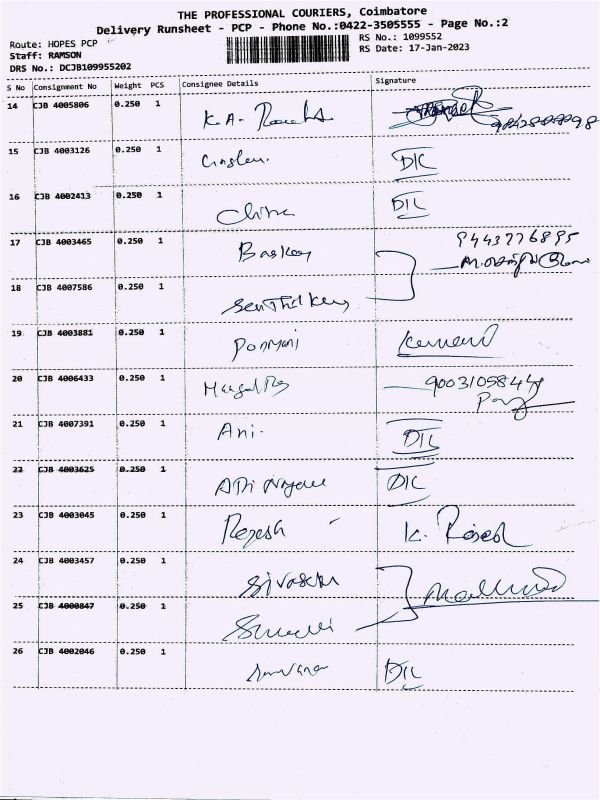 THE PROFESSIONAL COURIERS, Coimbatore
Delivery Runsheet - PCP - Phone No.:0422-3505555 - Page No.:2
Route: HOPES PCP
RS No.: 1099552
Staff: RAMSON
RS Date: 17-Jan-2023
DRS No.: DCJB109955202
S No Consignment No Weight PCS Consignee Details Signature
14 CJB 4005806 0.250 1 K.A.
15 CJB 4003126 0.250 1 DIC
16 CJB 4002413 0.250 1 Chitra DIC
17 CJB 4003465 0.250 1 Baskar 9443776895
18 CJB 4007586 0.250 1 Senthil
19 CJB 4003881 0.250 1 Ponmani
20 CJB 4006433 0.250 1
21 CJB 4007391 0.250 1 Ani. DIC
22 CJB 4003625 0.250 1 DIC
23 CJB 4003045 0.250 1 Rajesh K. Rajesh
24 CJB 4003457 0.250 1
25 CJB 4000847 0.250 1
26 CJB 4002046 0.250 1 DIC